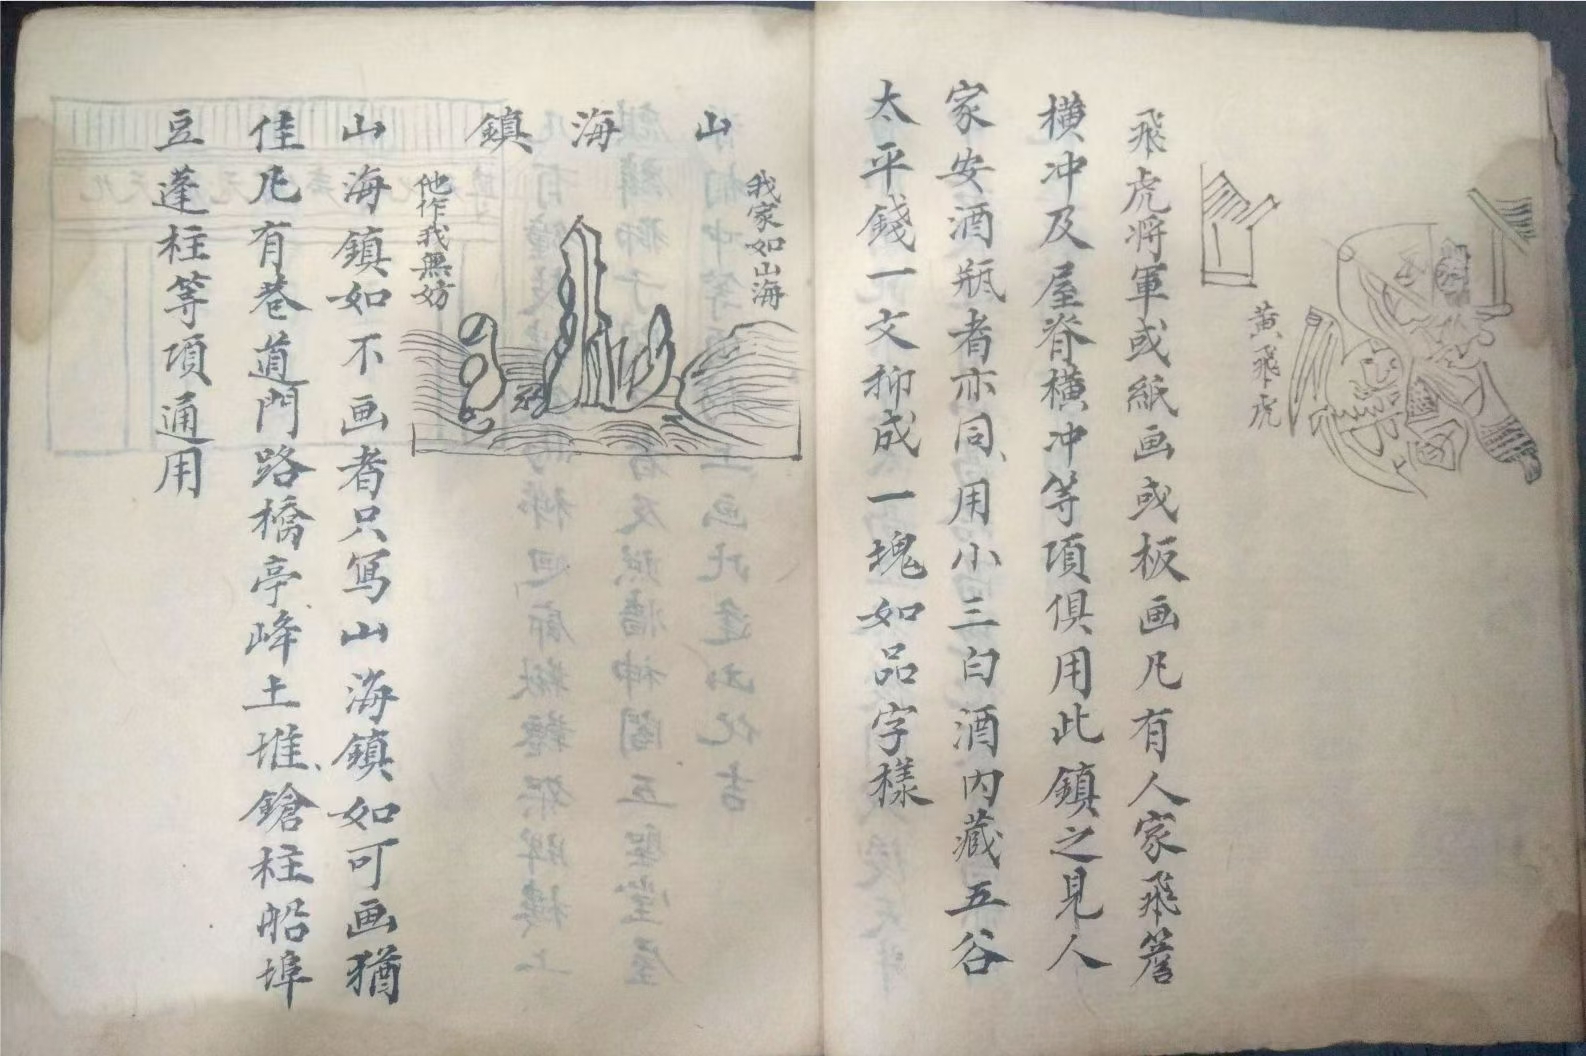 黄飛虎
飛虎将軍或紙画或板画凡有人家飛簷
横冲及屋脊横冲等項俱用此鎮之見人
家安酒瓶者亦同用小三白酒内藏五谷
太平錢一文抑成一塊如品字樣
山海鎮
我家如山海
他作我無妨
山海鎮如不画者只寫山海鎮如可画猶
佳凡有巷道門路橋亭峰土堆鎗柱船埠
豆蓬柱等項通用